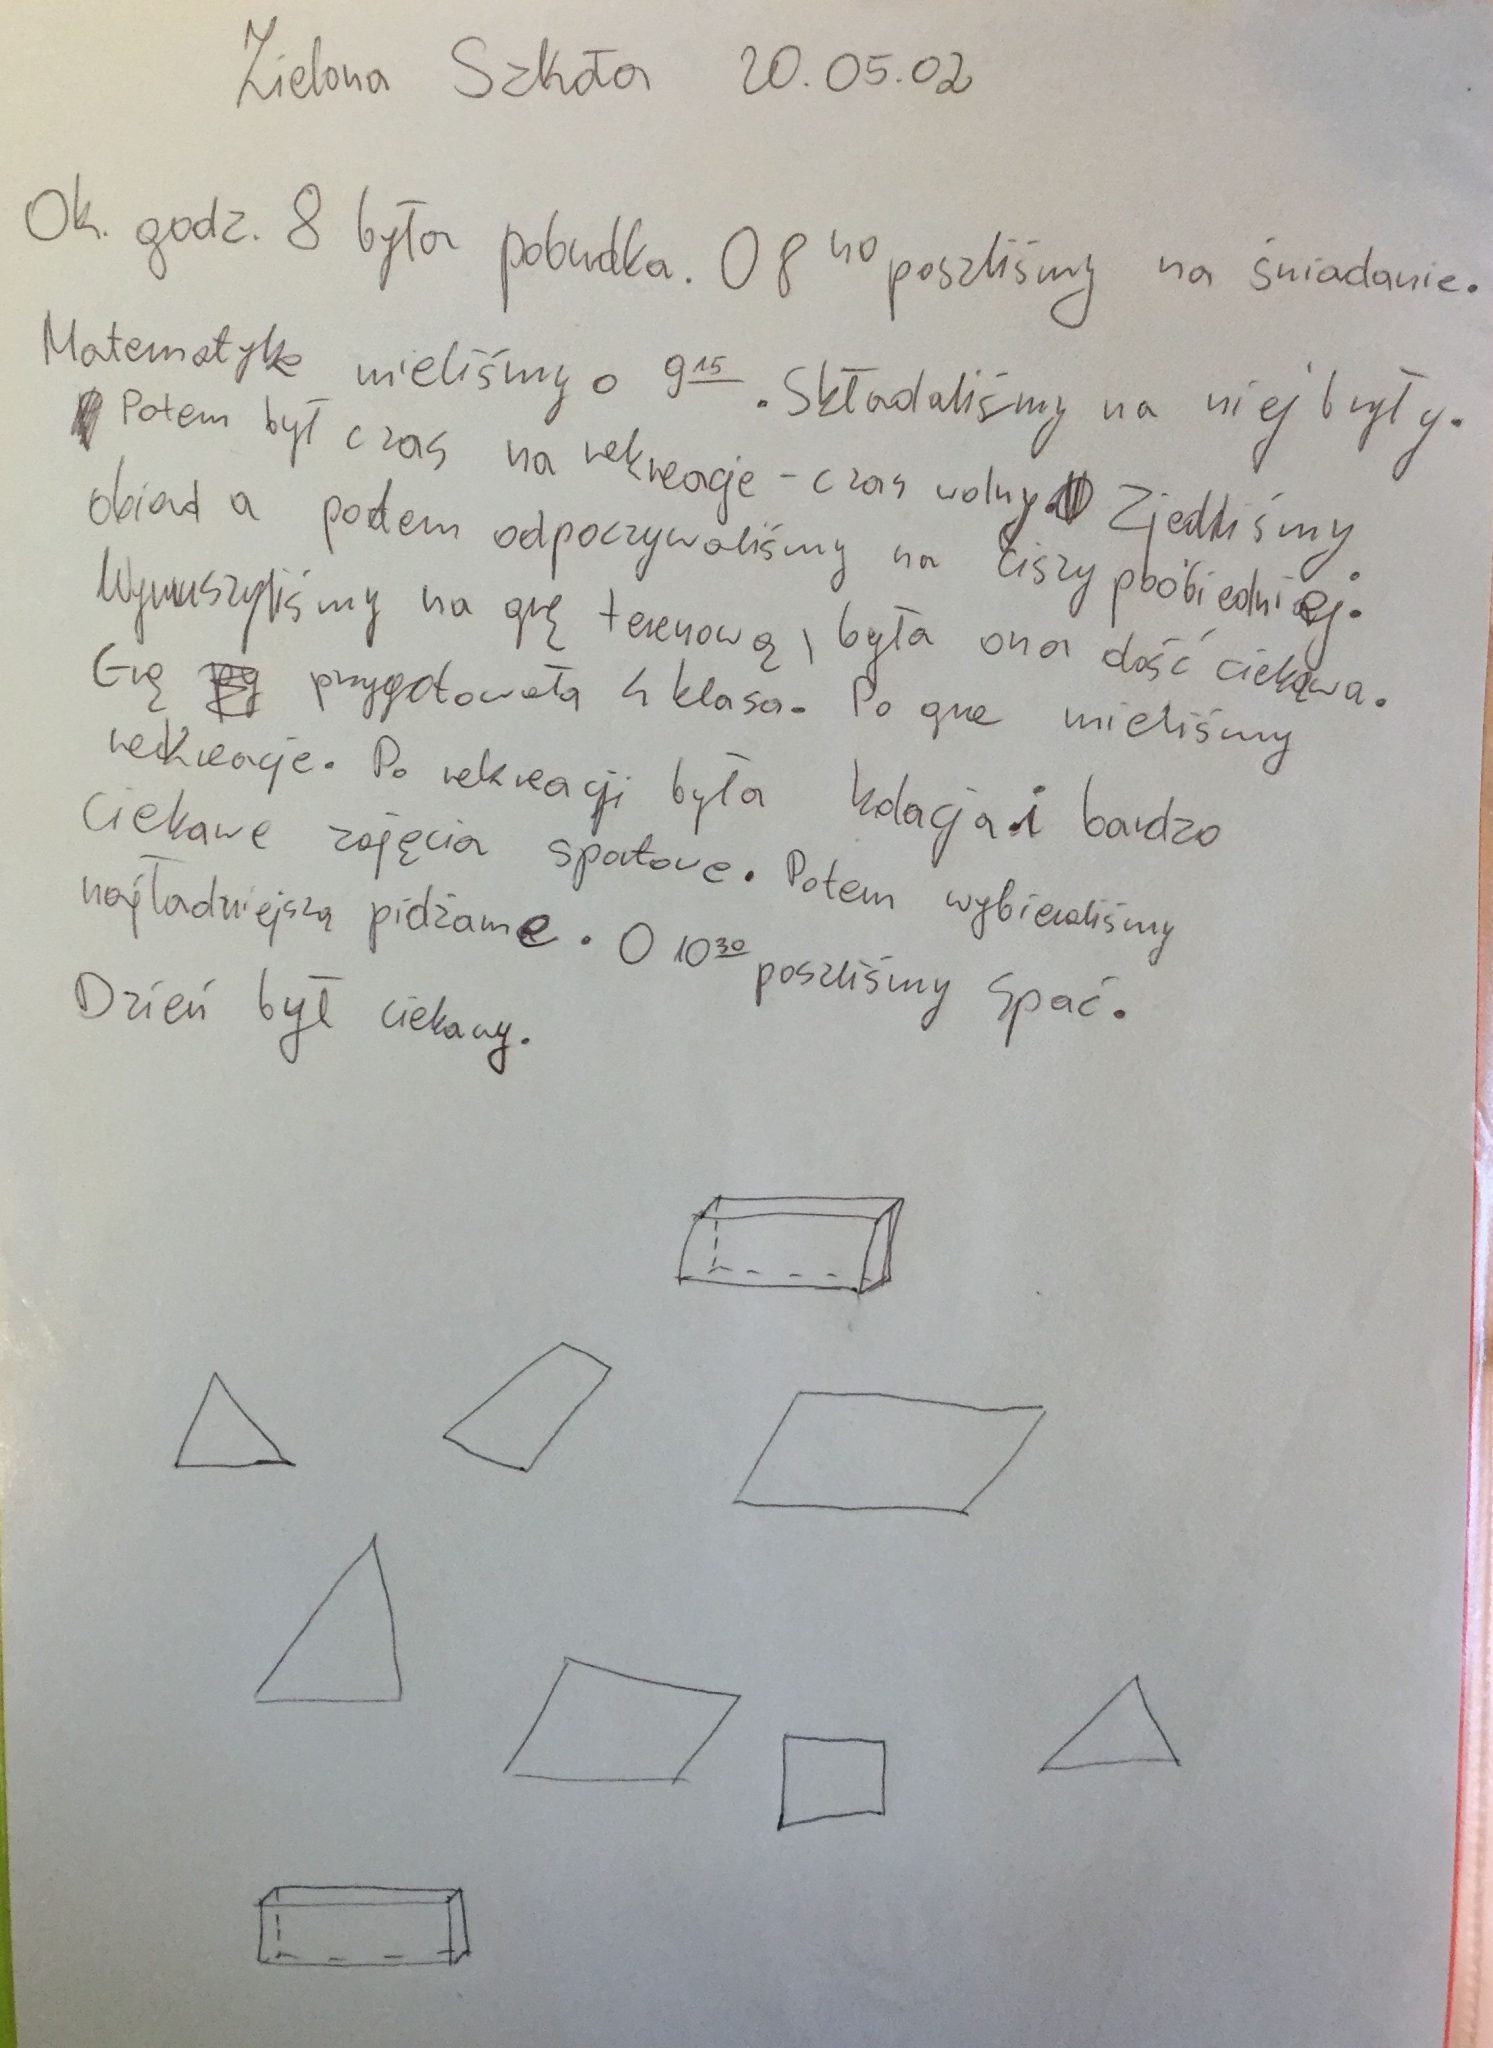 Zielona Szkoła 20.05.02
Ok. godz. 8 była pobudka. O 8 40 poszliśmy na śniadanie.
Matematykę mieliśmy o 9 15. Składaliśmy na niej bryły.
Potem był czas na rekreacje - czas wolny. Zjedliśmy
obiad a potem odpoczywaliśmy na ciszy poobiedniej.
Wyruszyliśmy na grę terenową, była ona dość ciekawa.
Grę przygotowała 4 klasa. Po grze mieliśmy
rekreacje. Po rekreacji była kolacja i bardzo
ciekawe zajęcia spatowe. Potem wybieraliśmy
najładniejszą pidżame. O 10 30 poszliśmy spać.
Dzień był ciekawy.